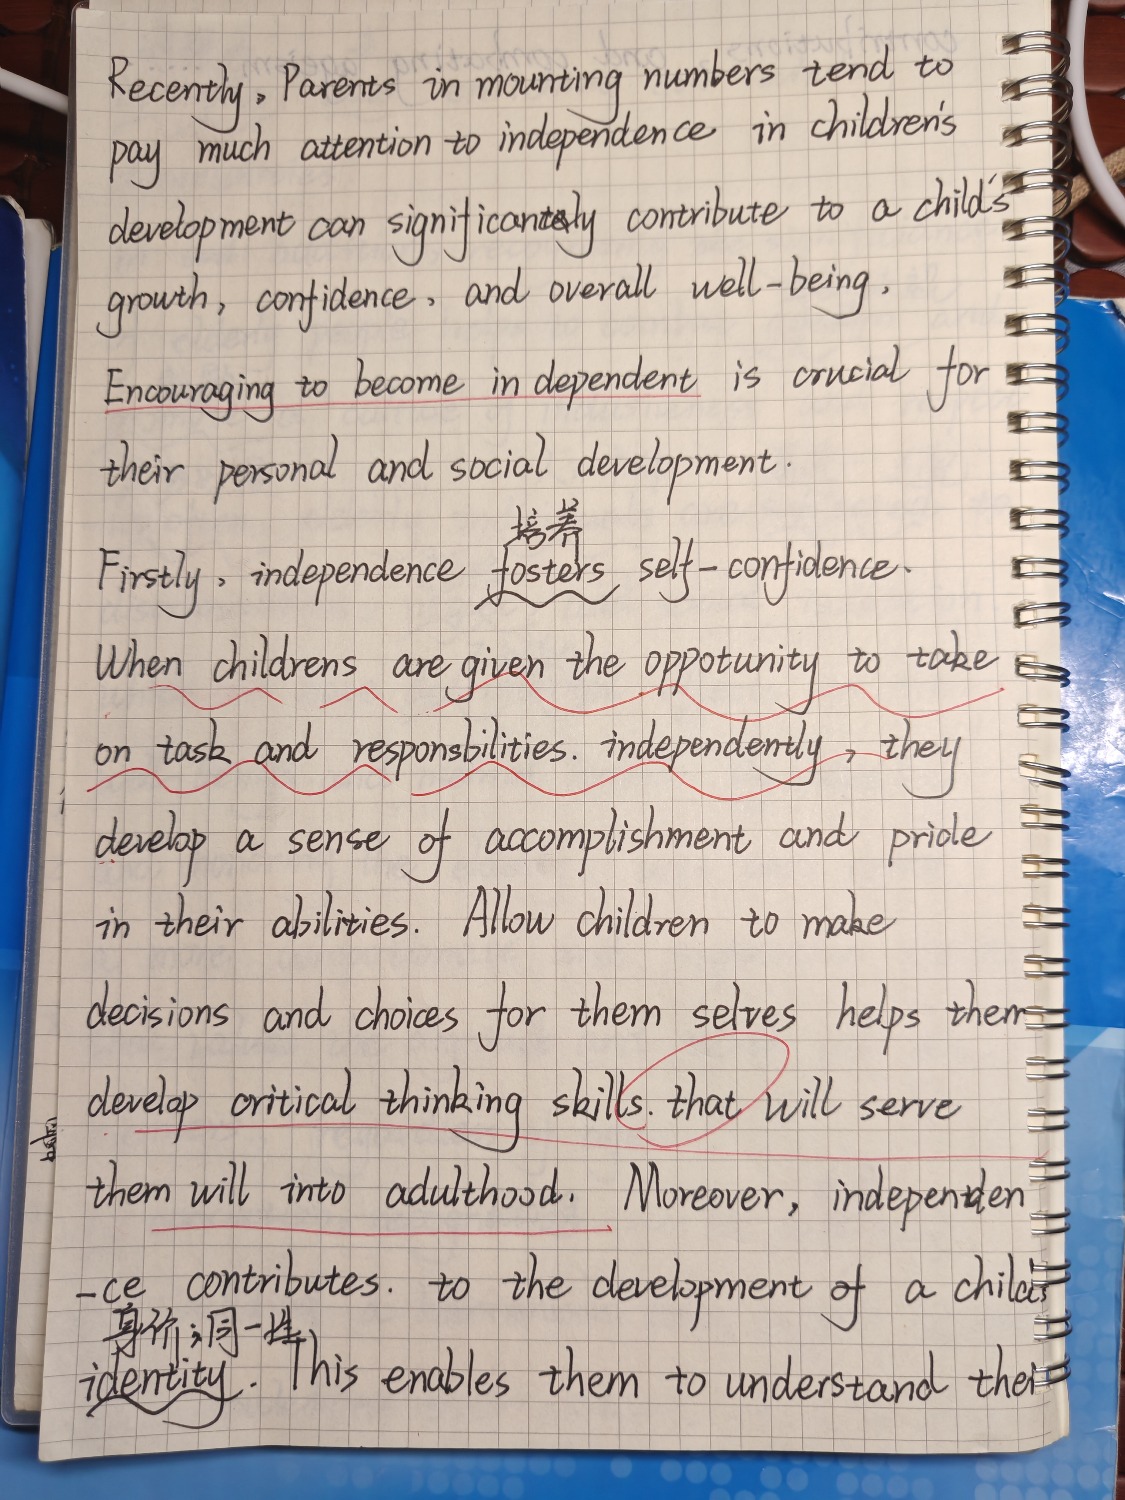 Recently, Parents in mounting numbers tend to
pay much attention to independence in children's
development can significantly contribute to a child's
growth, confidence, and overall well-being.
Encouraging to become independent is crucial for
their personal and social development.
培养
Firstly, independence fosters self-confidence.
When childrens are given the oppotunity to take
on task and responsbilities. independently, they
develop a sense of accomplishment and pride
in their abilities. Allow children to make
decisions and choices for them selves helps them
develop critical thinking skills. that will serve
them will into adulthood. Moreover, independen
-ce contributes. to the development of a child's
身份;同一性
identity. This enables them to understand their